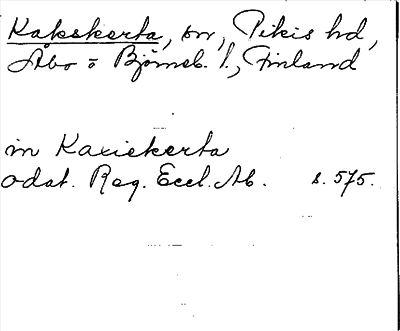 Kakskerta, sn, Pikis hd,
Åbo o Björneb. l., Finland
in Kaxiekerta
odat. Reg. Eccl. Ab. s. 575.